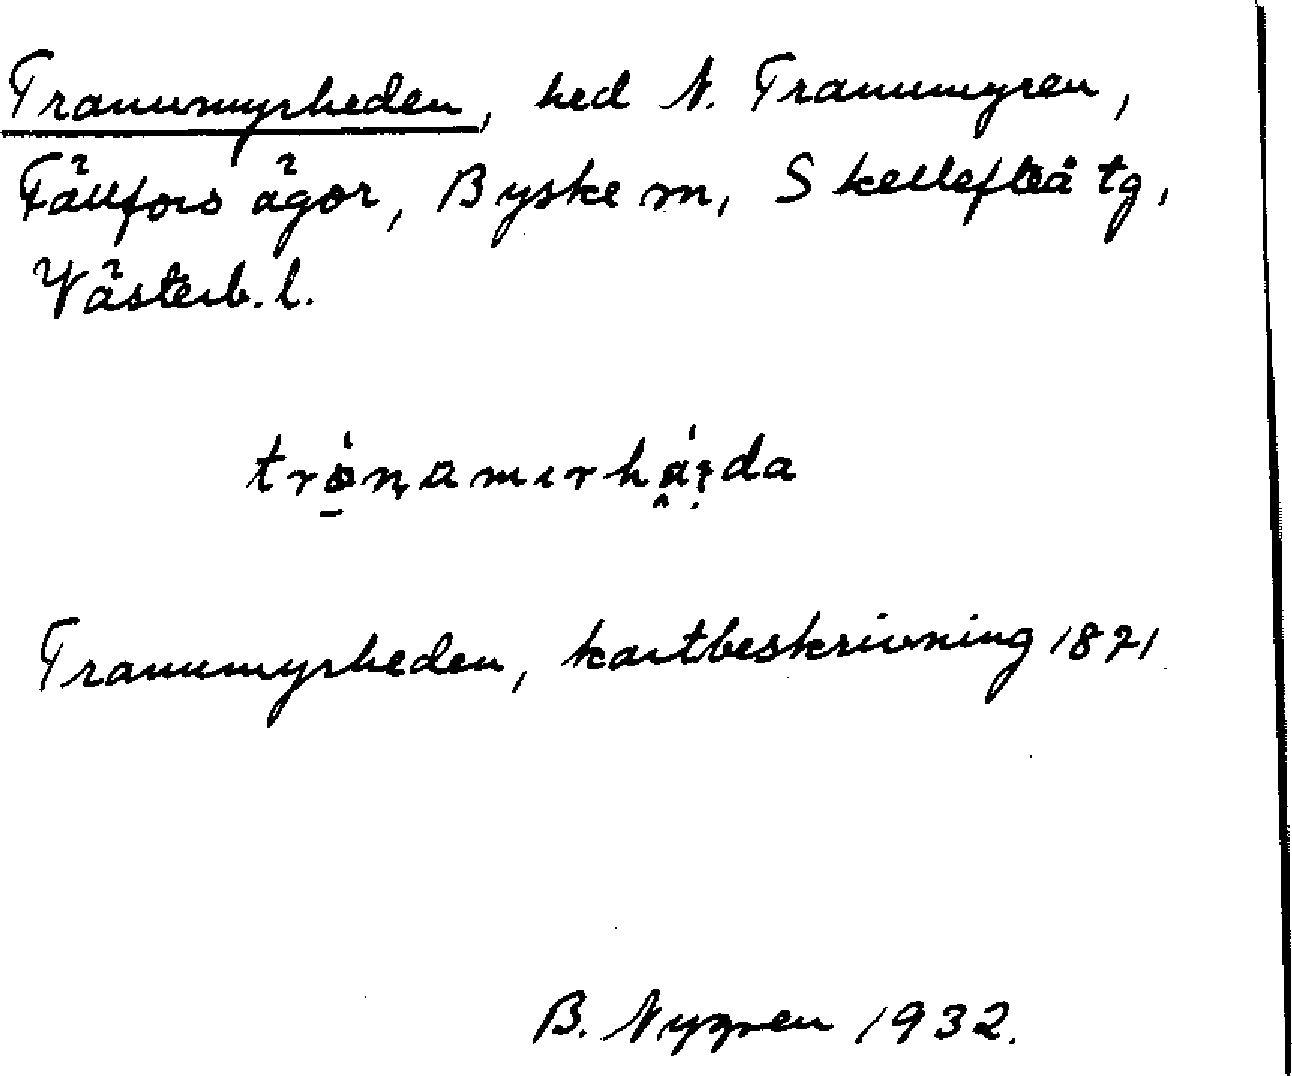 Tranumyrheden, hed N. Tranumyren,
Fällfors ägor, Byske sn, Skellefteå tg,
Västerb. l.
Tranumyrheden, kartbeskrivning 1871
B. Nygren 1932.